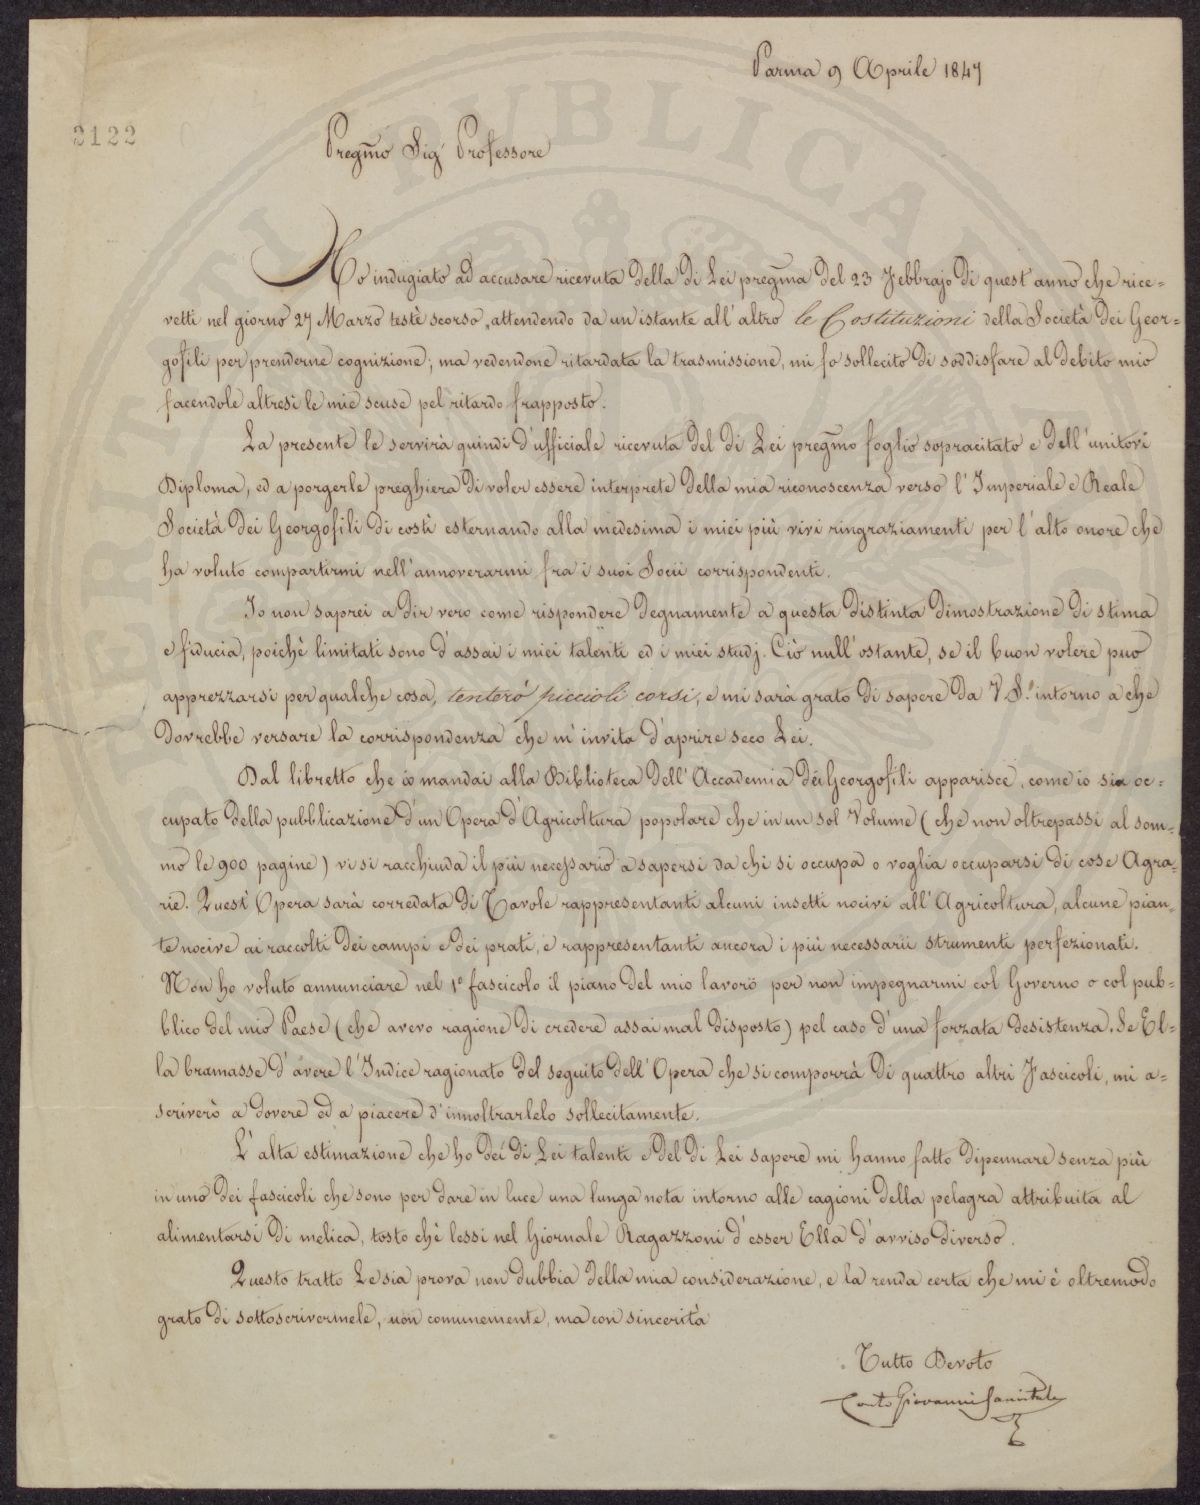 Parma 9 Aprile 1847
2122
Pregmo Sigr Professore
Ho indugiato ad accusare ricevuta della di Lei pregma del 23 Febbrajo di quest'anno che rice=
vetti nel giorno 27 Marzo testè scorso, attendendo da un istante all'altro le Costituzioni della Società dei Geor=
gofili per prenderne cognizione; ma vedendone ritardata la trasmissione, mi fo sollecito di soddisfare al debito mio
facendole altresì le mie scuse pel ritardo frapposto.
La presente le servirà quindi d'ufficiale ricevuta del di Lei pregmo foglio sopracitato e dell'unitovi
Diploma, ed a porgerle preghiera di voler essere interprete della mia riconoscenza verso l'Imperiale e Reale
Società dei Georgofili di costì esternando alla medesima i miei più vivi ringraziamenti per l'alto onore che
ha voluto compartirmi nell'annoverarmi fra i suoi Socii corrispondenti.
Io non saprei a dir vero come rispondere degnamente a questa distinta dimostrazione di stima
e fiducia, poichè limitati sono d'assai i miei talenti ed i miei studj. Ciò null'ostante, se il buon volere può
apprezzarsi per qualche cosa, tenterò piccioli corsi, e mi sarà grato di sapere da V. S. intorno a che
dovrebbe versare la corrispondenza che m'invita d'aprire seco Lei.
Dal libretto che io mandai alla Biblioteca dell'Accademia dei Georgofili apparisce, come io sia oc=
cupato della pubblicazione d'un Opera d'Agricoltura popolare che in un sol Volume (che non oltrepassi al som=
mo le 900 pagine) vi si racchiuda il più necessario a sapersi da chi si occupa o voglia occuparsi di cose Agra=
rie. Quest'Opera sarà corredata di Tavole rappresentanti alcuni insetti nocivi all'Agricoltura, alcune pian=
te nocive ai raccolti dei campi e dei prati, e rappresentanti ancora i più necessarii strumenti perfezionati.
Non ho voluto annunciare nel 1o fascicolo il piano del mio lavoro per non impegnarmi col Governo o col pub=
blico del mio Paese (che avevo ragione di credere assai mal disposto) pel caso d'una forzata desistenza. Se El=
la bramasse d'avere l'Indice ragionato del seguito dell'Opera che si comporrà di quattro altri Fascicoli, mi a=
scriverò a dovere ed a piacere d'innoltrarlelo sollecitamente.
L'alta estimazione che ho dei di Lei talenti e del di Lei sapere mi hanno fatto dipennare senza più
in uno dei fascicoli che sono per dare in luce una lunga nota intorno alle cagioni della pelagra attribuita al
alimentarsi di melica, tosto chè lessi nel Giornale Ragazzoni d'esser Ella d'avviso diverso.
Questo tratto Le sia prova non dubbia della mia considerazione, e la renda certa che mi è oltremodo
grato di sottoscrivermele, non comunemente, ma con sincerità
Tutto Devoto
Conte Giovanni Sanvitale